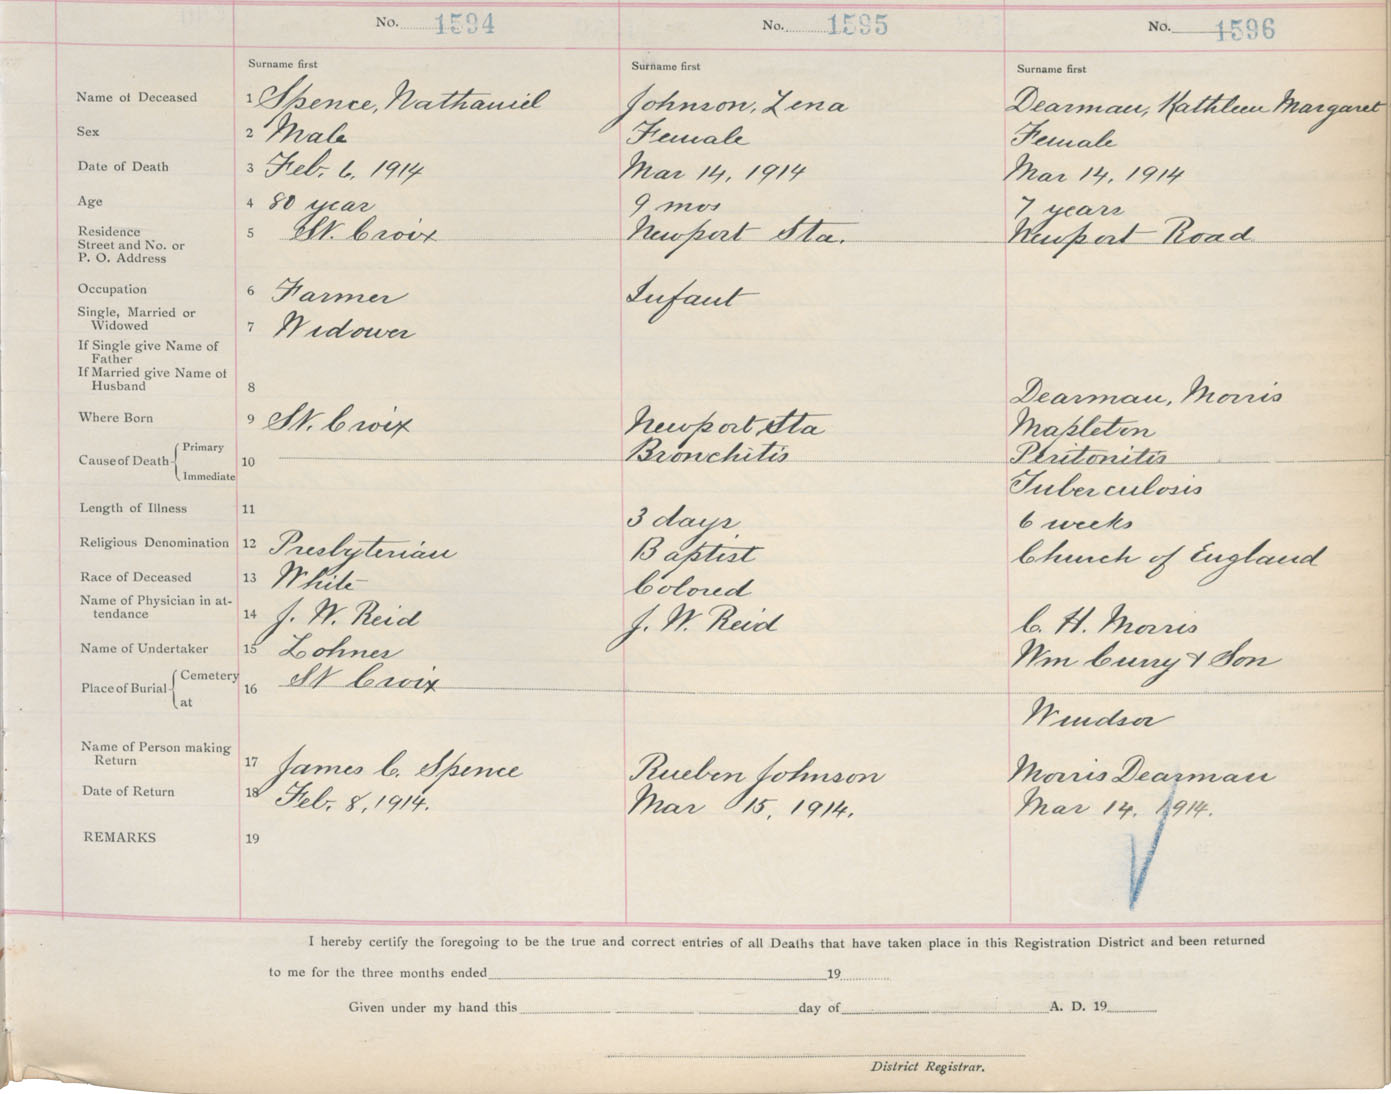 No. 1594 No. 1595 No. 1596
Surname first Surname first Surname first
Name of Deceased 1 Spence, Nathaniel Johnson, Lena Dearman, Kathleen Margaret
Sex 2 Male Female Female
Date of Death 3 Feb. 6, 1914 Mar 14, 1914 Mar 14, 1914
Age 4 80 year 9 mos 7 years
Residence
Street and No. or
P. O. Address 5 St. Croix Newport Sta. Newport Road
Occupation 6 Farmer Infant
Single, Married or
Widowed 7 Widower
If Single give Name of
Father
If Married give Name of
Husband 8 Dearman, Morris
Where Born 9 St. Croix Newport Sta Mapleton
Cause of Death Primary 10 Bronchitis Peritonitis
Immediate Tuberculosis
Length of Illness 11 3 days 6 weeks
Religious Denomination 12 Presbyterian Baptist Church of England
Race of Deceased 13 White Colored
Name of Physician in at-
tendance 14 J. W. Reid J. W. Reid C. H. Morris
Name of Undertaker 15 Lohnes Wm Curry & Son
Place of Burial Cemetery 16 St Croix
at Windsor
Name of Person making
Return 17 James C. Spence Rueben Johnson Morris Dearman
Date of Return 18 Feb. 8, 1914. Mar 15, 1914. Mar 14, 1914.
REMARKS 19
I hereby certify the foregoing to be the true and correct entries of all Deaths that have taken place in this Registration District and been returned
to me for the three months ended 19
Given under my hand this day of A. D. 19
District Registrar.